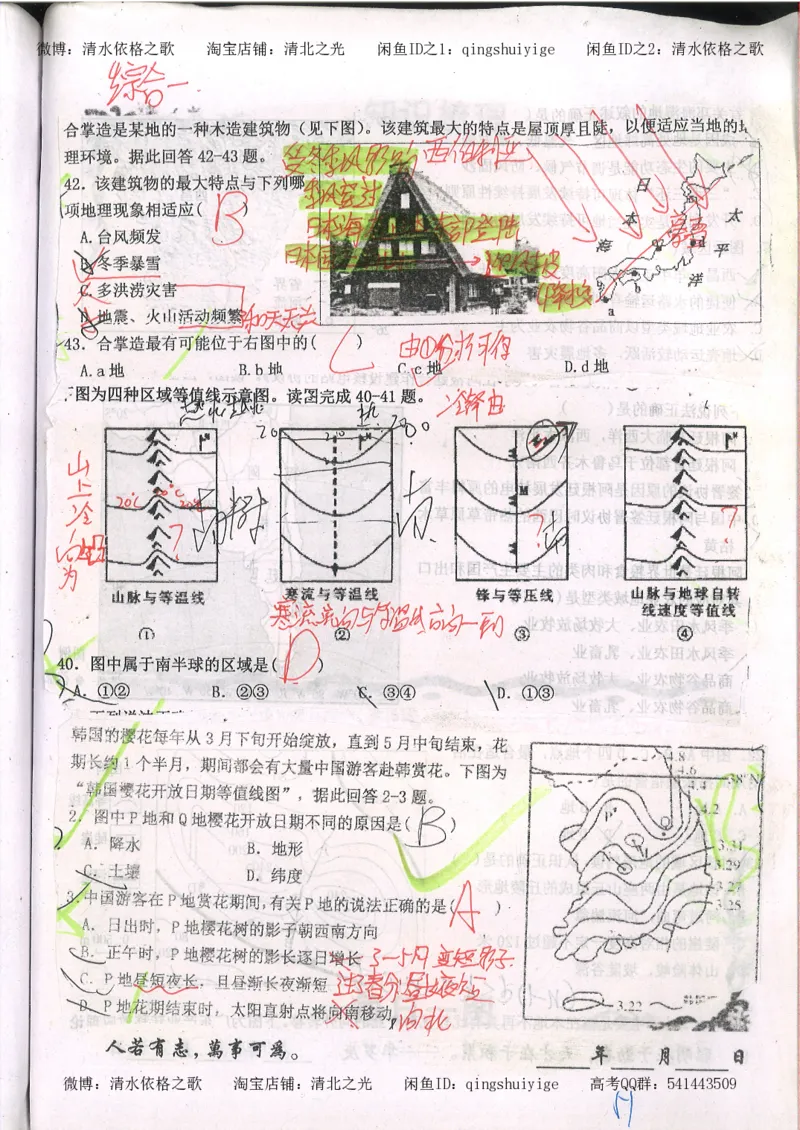 微博：清水依格之歌 淘宝店铺：清北之光 闲鱼ID之1：qingshuiyige 闲鱼ID之2：清水依格之歌
综合一
合掌造是某地的一种木造建筑物（见下图）。该建筑最大的特点是屋顶厚且陡，以便适应当地的地
理环境。据此回答 42-43 题。
受冬季风影响 西伯利亚
42．该建筑物的最大特点与下列哪
季风穿过
项地理现象相适应( B )
日本海
A.台风频发
B.冬季暴雪
C.多洪涝灾害
D.地震、火山活动频繁
日
本
海
太
平
洋
a
b
43．合掌造最有可能位于右图中的( C )
A.a 地 B.b 地 C.c 地 D.d 地
下图为四种区域等值线示意图。读图完成 40-41 题。
山上冷
20℃
M
山脉与等温线
寒流与等温线
锋与等压线
山脉与地球自转
线速度等值线
① ② ③ ④
40．图中属于南半球的区域是( D )
A．①② B．②③ C．③④ D．①③
韩国的樱花每年从 3 月下旬开始绽放，直到 5 月中旬结束，花
期长约 1 个半月，期间都会有大量中国游客赴韩赏花。下图为
“韩国樱花开放日期等值线图”，据此回答 2-3 题。
2．图中 P 地和 Q 地樱花开放日期不同的原因是( B )
A．降水 B．地形
C．土壤 D．纬度
4.8
4.6
4.4
38°N
4.2
Q
P
3.31
3.29
3.27
3.25
3.22
3.中国游客在 P 地赏花期间，有关 P 地的说法正确的是( A )
A．日出时，P 地樱花树的影子朝西南方向
B．正午时，P 地樱花树的影长逐日增长 3-5月 变短
C．P 地昼短夜长，且昼渐长夜渐短 过了春分昼比夜长
D．P 地花期结束时，太阳直射点将向南移动 向北
人若有志，萬事可為。
年 月 日
微博：清水依格之歌 淘宝店铺：清北之光 闲鱼ID：qingshuiyige 高考QQ群：541443509